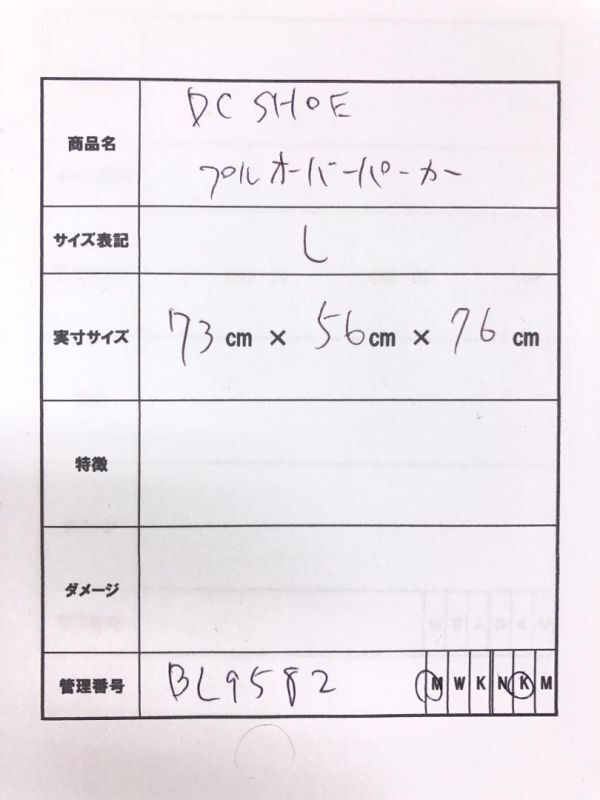 商品名 DC SHOE
プルオーバーパーカー
サイズ表記 L
実寸サイズ 73 cm × 56 cm × 76 cm
特徴
ダメージ
管理番号 BL9582 M W K N K M